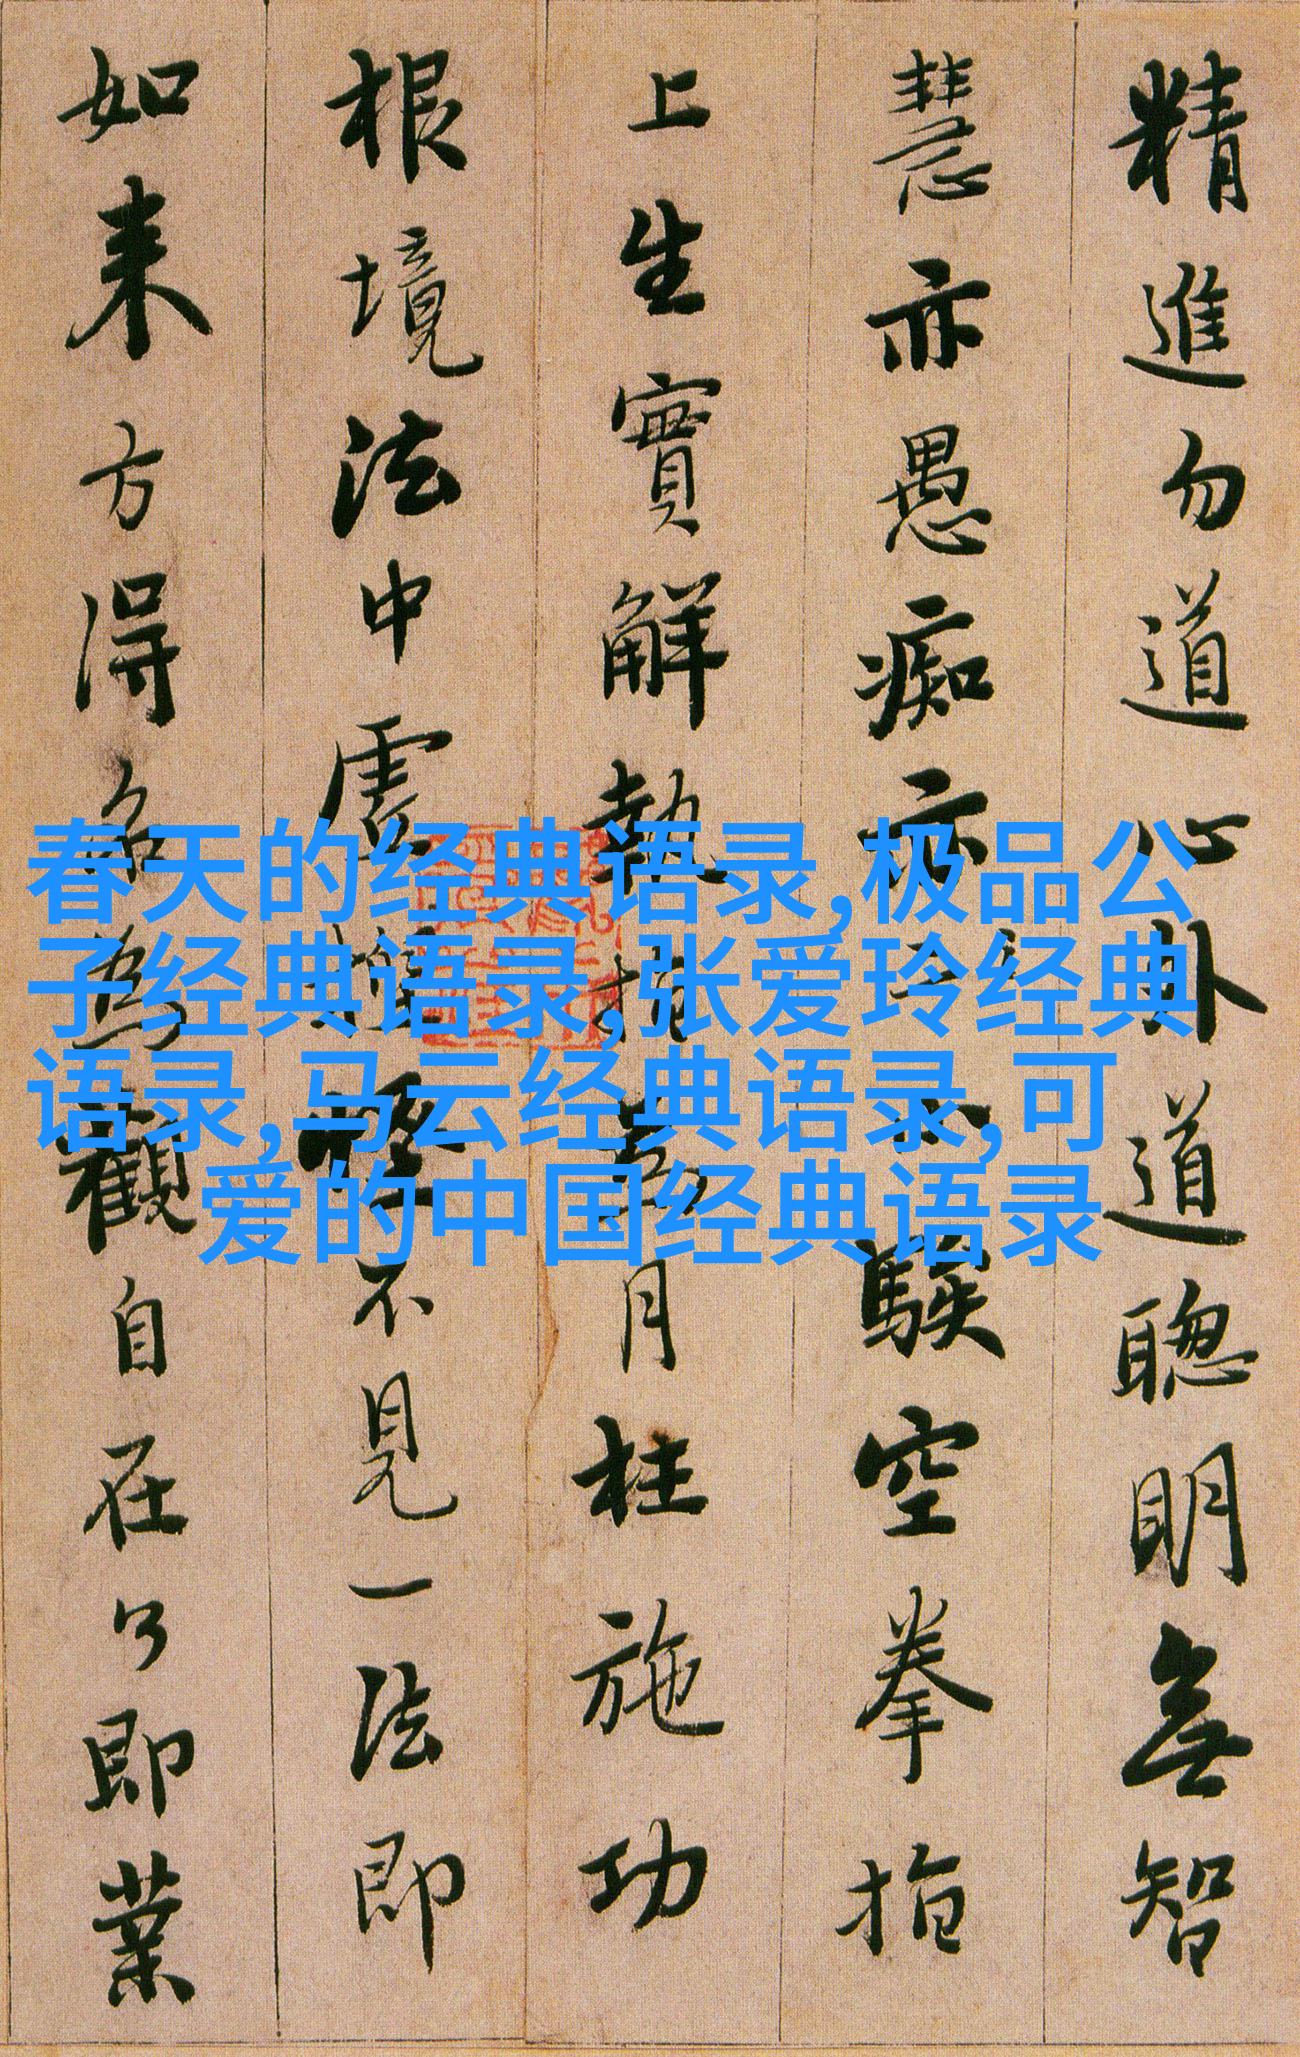 精進勿道心外道聰明無智
慧亦愚痴亦騃空拳指
上生實解執指為月枉施功
根境法中虛捏怪不見一法即
如來方得名為觀自在了即業
春天的经典语录,极品公
子经典语录,张爱玲经典
语录,马云经典语录,可
爱的中国经典语录